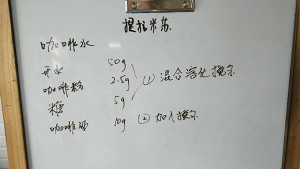 提拉米苏
咖啡水
开水 50g
咖啡粉 2.5g ① 混合溶化搅匀
糖 5g
咖啡酒 10g ② 加入搅匀